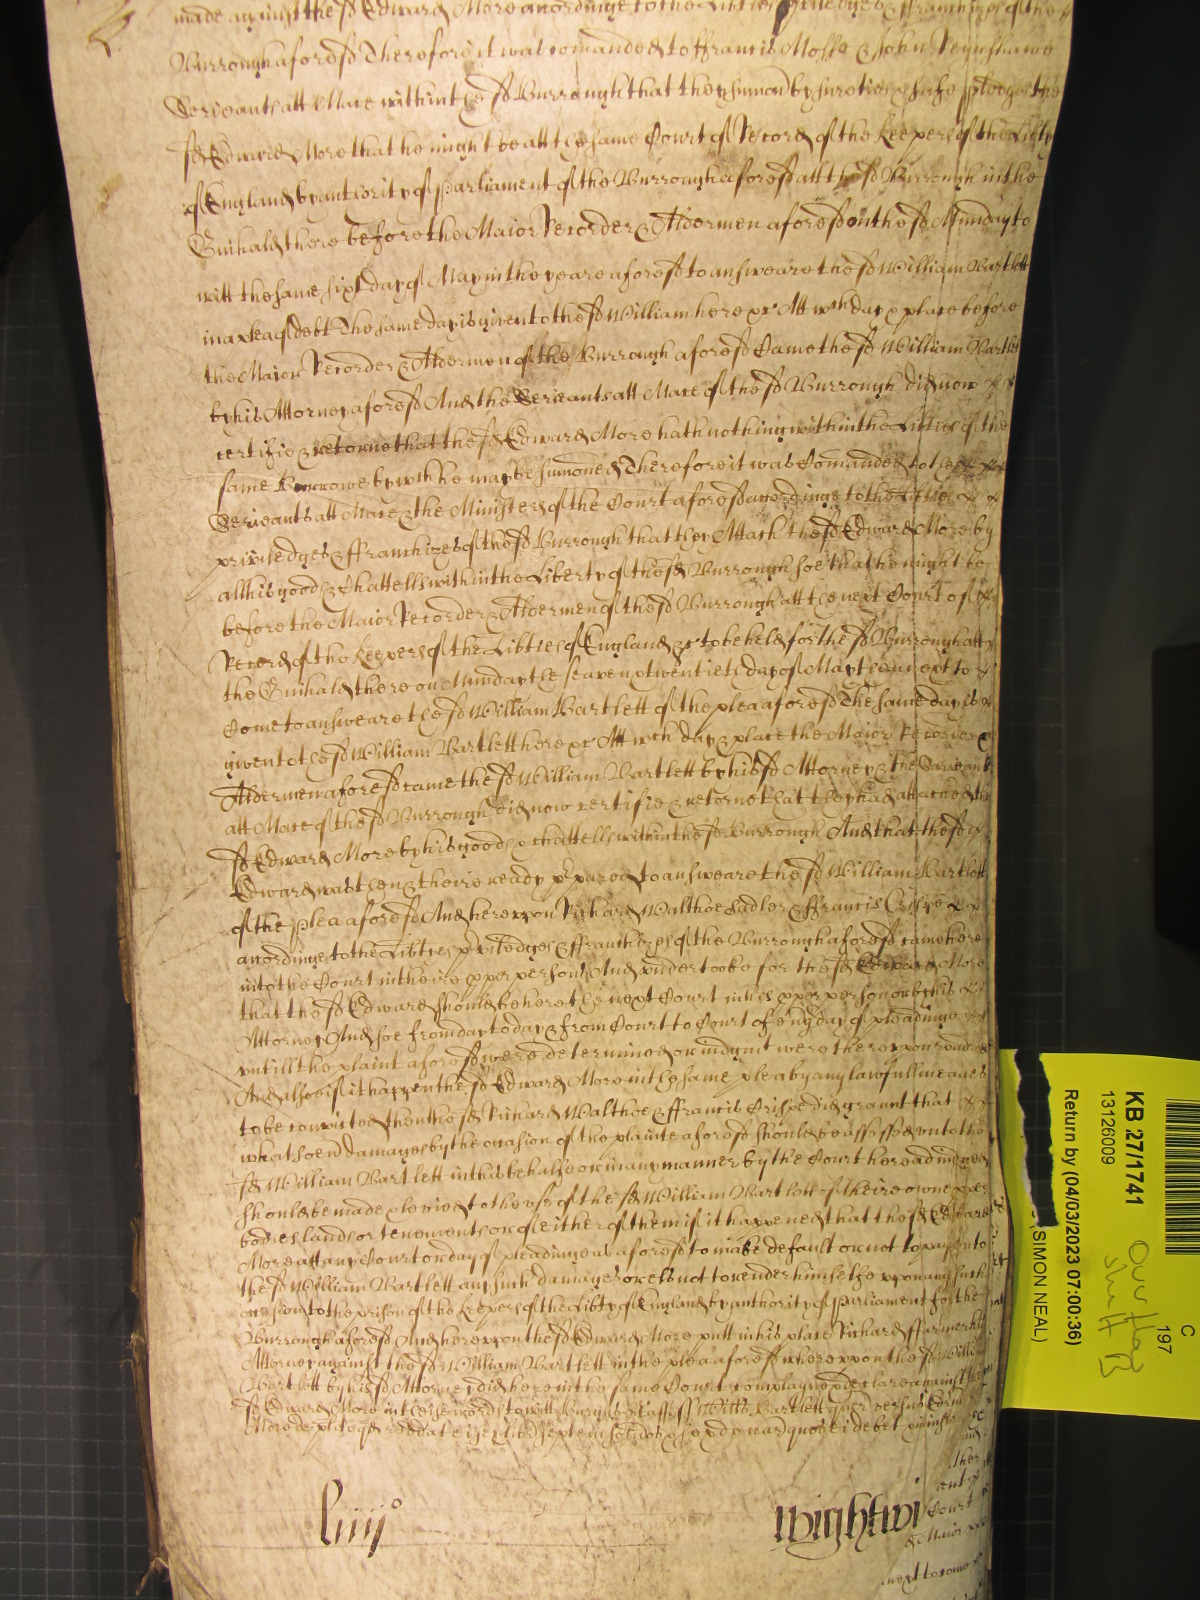 made against the sd Edward More accordinge to the Libties priviledges & ffranchizes of the
Burrough aforesd Therefore it was comanded to ffrancis Mosse & John Reynshawe
Serieants att Mace within the sd Burrough that they sumon by sureties & safe pledges the
sd Edward More that he might be att the same Court of Record of the keepers of the Libty
of England by autority of Parliament of the Burrough aforesd att the sd Burrough in the
Guihald there before the Maior Recorder & Aldermen aforesd on the sd Munday to
witt the same sixt day of May in the yeare aforesd to answeare the sd William Bartlett
in a plea of debt The same day is given to the sd William here &c Att wch day & place before
the Maior Recorder & Aldermen of the Burrough aforesd Came the sd William Bartlett
by his Attorney aforesd And the Serieants att Mace of the sd Burrough did now
certifie & retorne that the sd Edward More hath nothing within the Libties of the
same Burrowe by wch he may be sumoned Therefore it was Comanded to the
Serieants att Mace & the Ministers of the Court aforesd accordinge to the Libties
priviledges & ffranchizes of the sd Burrough that they Attach the sd Edward More by
all his goods & Chattells within the Liberty of the sd Burrough soe that he might be
before the Maior Recorder & Aldermen of the sd Burrough att the next Court of
Record of the keepers of the Libties of England &c to be held for the sd Burrough att
the Guihald there on Munday the seaven & twentieth day of May then next to
Come to answeare the sd William Bartlett of the plea aforesd The same day is
given to the sd William Bartlett here &c Att wch day & place the Maior Recorder &
Aldermen aforesd came the sd William Bartlett by his sd Attorney & the Serieants
att Mace of the sd Burrough did now certifie & retorne that they had attached the
sd Edward More by his goods & chattells within the sd Burrough And that the sd
Edward was then & theire ready & ppared to answeare the sd William Bartlett
of the plea aforesd And hereupon Richard Walthoe Sadler & ffrancis Crispe
accordinge to the Libties priviledges & ffranchizes of the Burrough aforesd came here
into the Court in theire pper persons And undertooke for the sd Edward More
that the sd Edward should be here the next Court in his pper person or by his
Attorney And soe from day to day & from Court to Court of every day of pleadinge
untill the plaint aforesd were determined or iudgmt were thereupon rendred
And alsoe if it happen the sd Edward More in the same plea by any lawfull meanes
to be convicted then the sd Richard Walthoe & ffrancis Crispe did graunt that
whatsoevr damages by the occasion of the plainte aforesd should be assessed unto the
sd William Bartlett in this behalfe or in any manner by the Court here adiudged
should be made & levied to the use of the sd William Bartlett of theire owne pper
bodies lands or tenements or of either of them if it happened that the sd Edward
More att any Court or day of pleading as aforesd to make default or not to pay unto
the sd William Bartlett any such damages or els not to render himselfe upon any such
occasion to the prison of the keepers of the Libty of England by authority of Parliament for the
Burrough aforesd And hereupon the sd Edward More putt in his place Richard ffarmer his
Attorney against the sd William Bartlett in the plea aforesd whereupon the sd William
Bartlett by his sd Attorney did here in the same Court complayne & declare against the
sd Edward More in these words to witt Burgus Staff ss Willus Bartlett quer versus Edrum
More de plito qd reddat ei
liiijo
Wightwi
Court
& Maior
next to come
KB 27/1741
13126009
Return by (04/03/2023 07:00:36)
(SIMON NEAL)
C
197